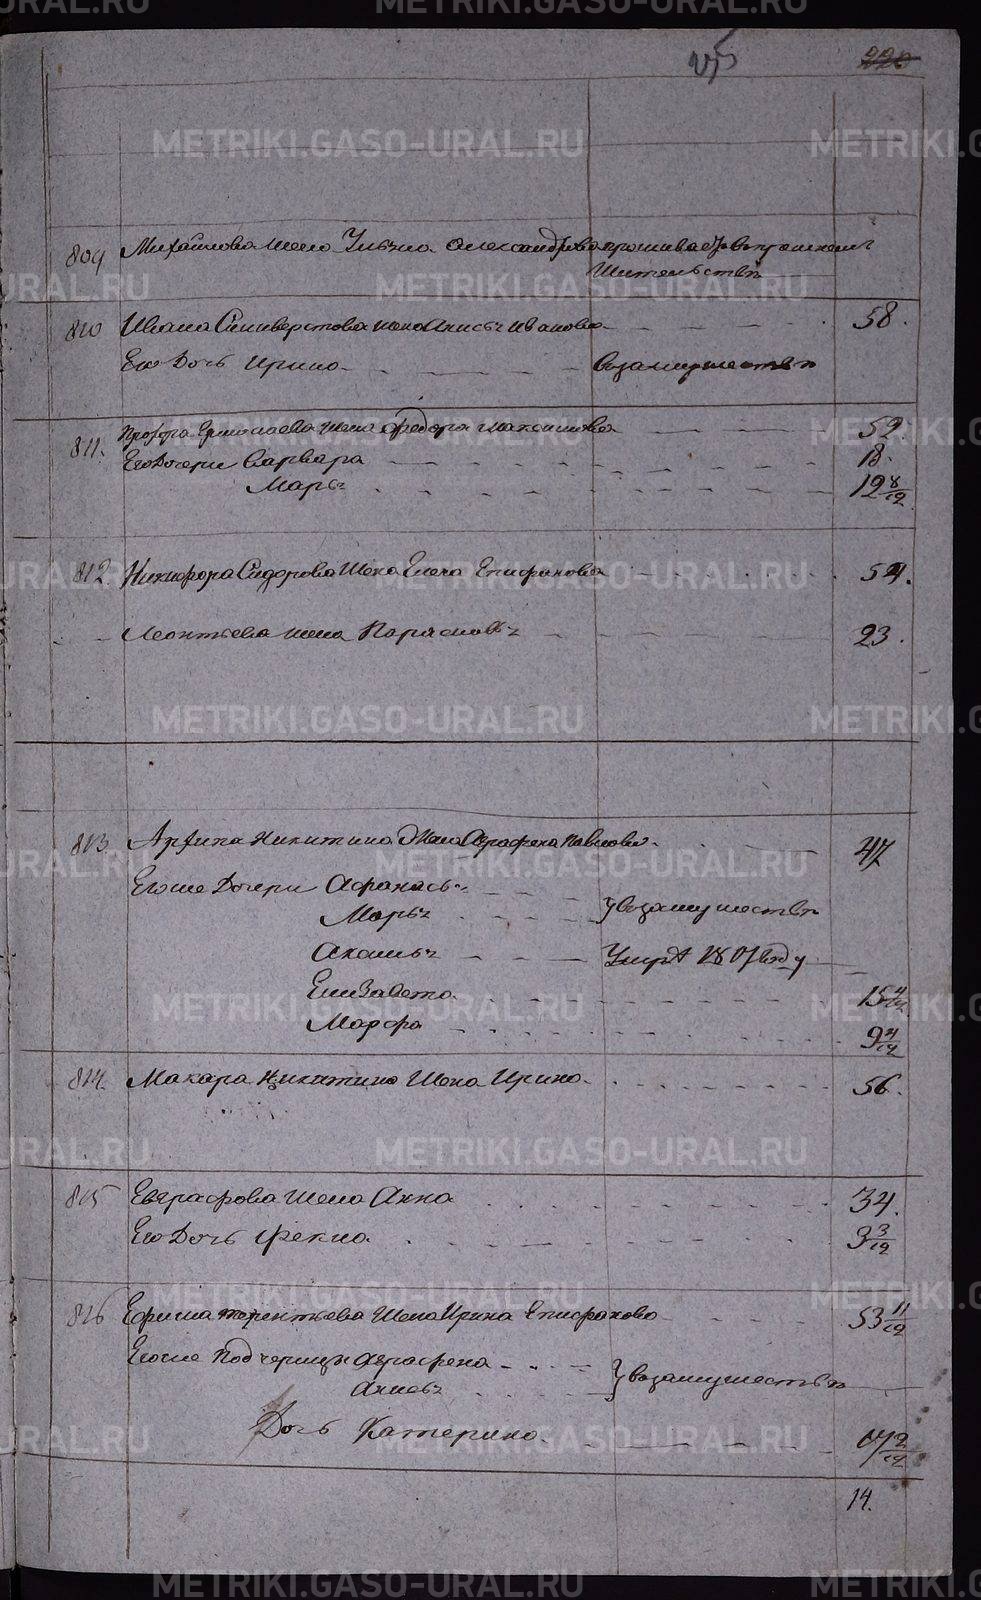 225 220
809 Михайлова жена Ульяна Александрова проживает
жительстве
810 Ивана Селиверстова жена Анисья Иванова 58.
Его Дочь Ирина взамужестве
811. Прохора Ермолаева жена Федора Максимова 52.
Его Дочери Варвара 18.
Марья 12 8/12
812. Никифора Сидорова Жена Елена Епифанова 54.
Леонтьева жена Парасковья 23.
813 Архипа Никитина Жена Аграфена Павлова 47
Егоже Дочери Афанасья
Марья взамужестве
Акилина Умре 1807 году
Елизавета 15 4/12
Марфа 9 4/12
814. Макара Никитина Жена Ирина 56.
815 Евграфова Жена Анна 34.
Его Дочь Фекла 3 3/12
816 Ефима терентьева Жена Ирина Епифанова 53 11/12
Егоже Подчерицы Аграфена
Анисья взамужестве
Дочь Катерина 7 2/12
14.
METRIKI.GASO-URAL.RU